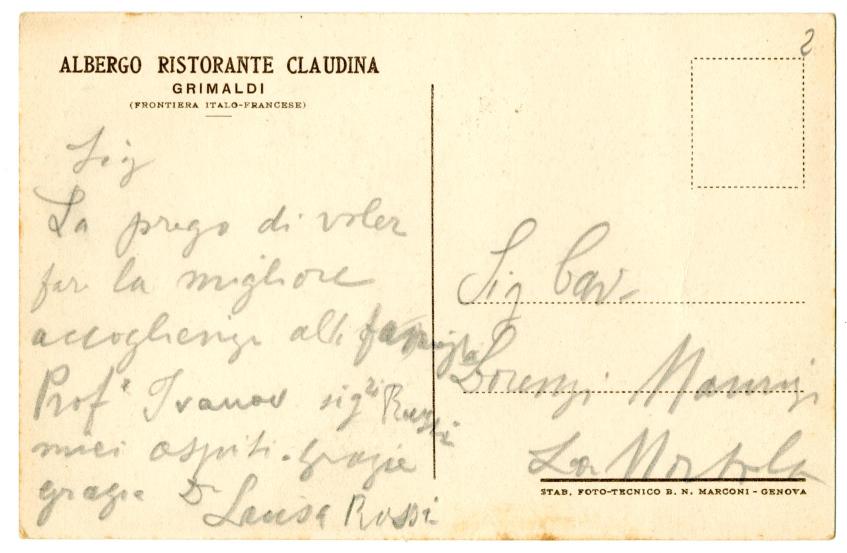 ALBERGO RISTORANTE CLAUDINA
GRIMALDI
(FRONTIERA ITALO-FRANCESE)
2
Sig
La prego di voler
far la migliore
accoglienza alla famiglia
Prof. Ivanov sig.ri Russi
miei ospiti. grazie
grazie Dr Laura Rossi
Sig Cav.
Lorenzi
La Mortola
STAB. FOTO-TECNICO B. N. MARCONI - GENOVA